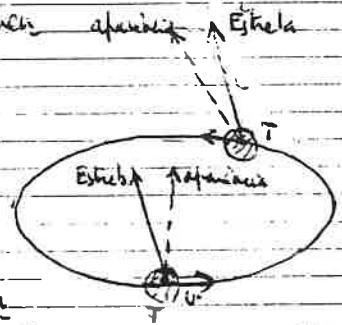 aparência Estrela
T
Estrela aparência
v
T